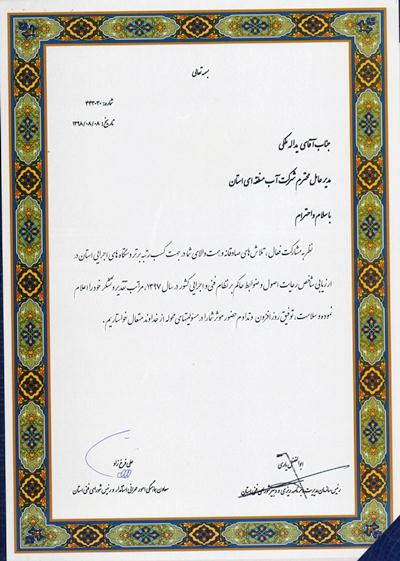 بسمه تعالی
شماره: ۴۴۲۰۳۰
تاریخ: ۱۳۹۸/۰۸/۰۸
جناب آقای یداله ملکی
مدیر عامل محترم شرکت آب منطقه ای استان
با سلام و احترام
نظر به مشارکت فعال، تلاش های صادقانه و همت والای شما در جهت کسب رتبه برتر دستگاه های اجرایی استان در
ارزیابی شاخص رعایت اصول و ضوابط حاکم بر نظام فنی و اجرایی کشور در سال ۱۳۹۷، مراتب تقدیر و تشکر خود را اعلام
نموده و سلامت، توفیق روز افزون و تداوم حضور موثر شما را در مسئولیتهای محوله از خداوند متعال خواستاریم.
ابوالفضل یاری
رئیس سازمان مدیریت و برنامه ریزی و دبیر شورای فنی استان
علی فرخ زاد
معاون هماهنگی امور عمرانی استاندار و رئیس شورای فنی استان